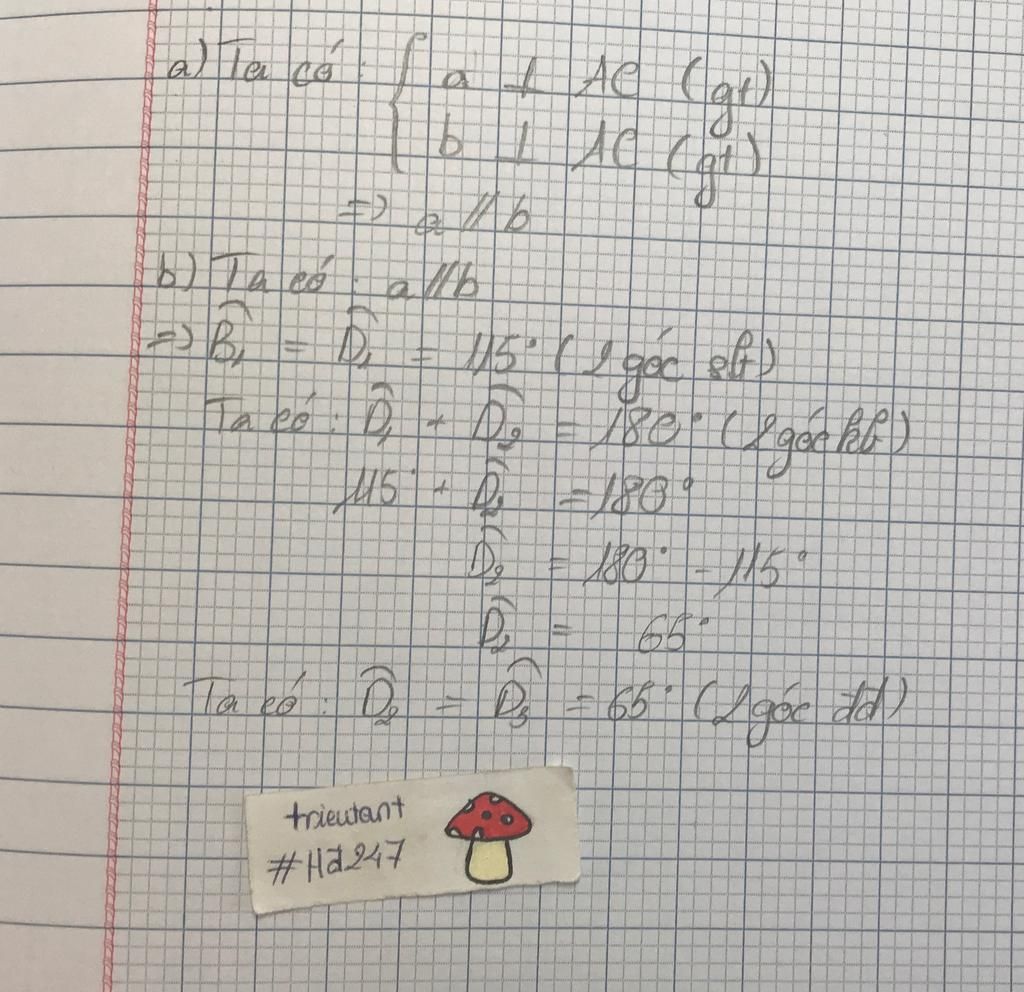 a) Ta có : { a ⊥ AC (gt)
b ⊥ AC (gt)
=> a // b
b) Ta có : a // b
=> B̂₁ = D̂₁ = 115° (2 góc slt)
Ta có : D̂₁ + D̂₂ = 180° (2 góc kb)
115° + D̂₂ = 180°
D̂₂ = 180° - 115°
D̂₂ = 65°
Ta có : D̂₂ = D̂₃ = 65° (2 góc đđ)
trieutant
#Hd247